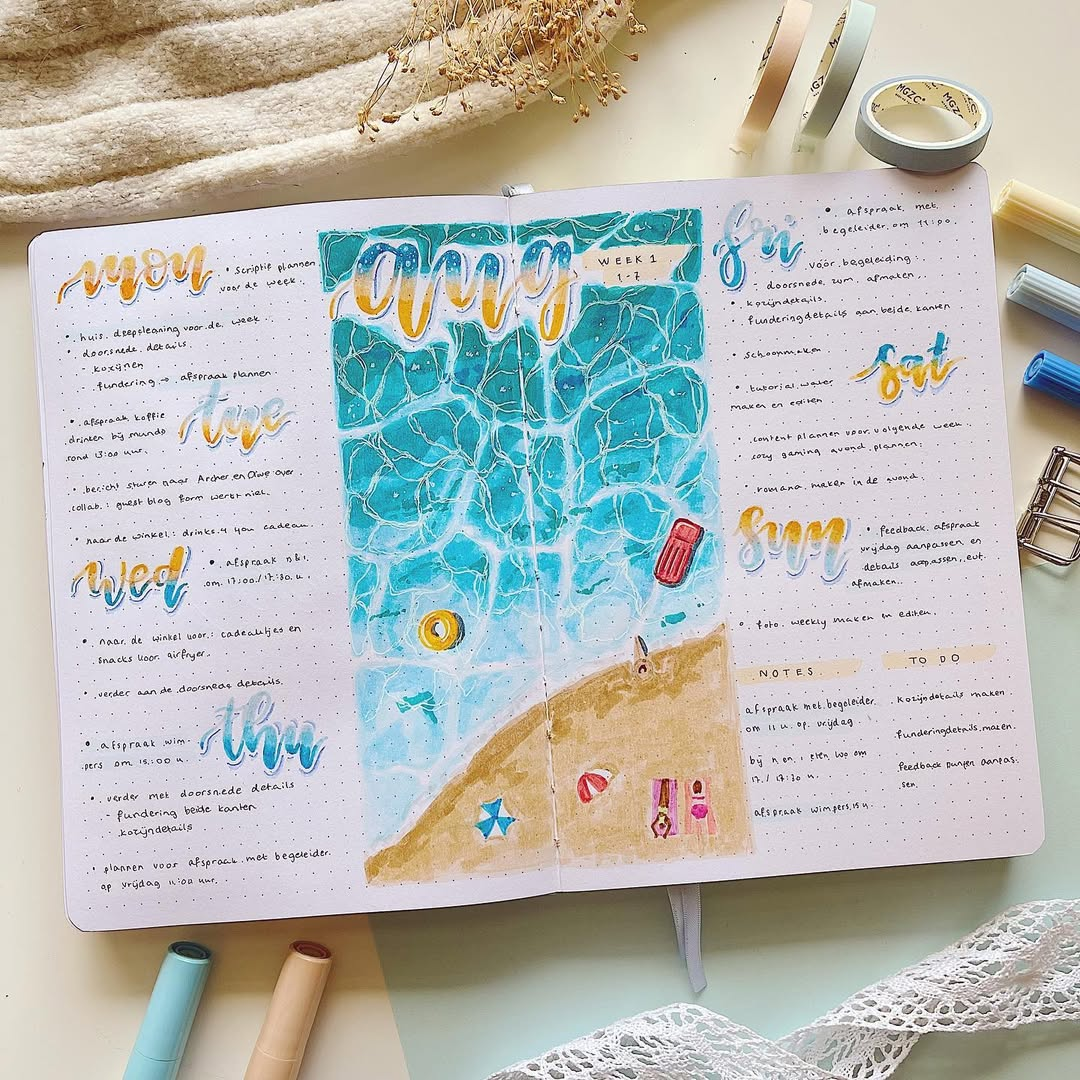 mon
• scriptie plannen
voor de week.
• huis. deepcleaning voor.de. week.
• doorsnede. details.
- kozijnen
- fundering → afspraak plannen.
tue
• afspraak koffie
drinken bij mundo
rond 13:00 uur.
• bericht sturen naar Archer en Olive over
collab.: guest blog form werkt niet.
• naar de winkel: drinks 4 you cadeau.
wed
• afspraak n&i,
om 17:00./17:30.u.
• naar. de winkel voor: cadeautjes en
snacks voor airfryer.
• verder aan de doorsnede details.
thu
• afspraak wim-
pers om 15:00 u.
• verder met doorsnede details
- fundering beide kanten
- kozijndetails
• plannen voor afspraak met begeleider.
op vrijdag 11:00 uur.
aug
WEEK 1
1-7
fri
• afspraak met
begeleider om 11:00.
voor begeleiding:
- doorsnede afmaken.
• kozijndetails.
• funderingdetails aan beide kanten
sat
• schoonmaken
• tutorial water
maken en editen
• content plannen voor volgende week.
• cozy gaming avond plannen.
• romana maken in de avond.
sun
• feedback afspraak
vrijdag aanpassen en
details aanpassen, evt.
afmaken.
• foto weekly maken en editen.
NOTES
afspraak met begeleider
om 11 u. op. vrijdag.
bij n en i eten wo om
17./ 17:30 u.
afspraak wimpers 15 u.
TO DO
kozijndetails maken.
funderingdetails maken.
feedback punten aanpas-
sen.
MGZC
MGZC
MGZC